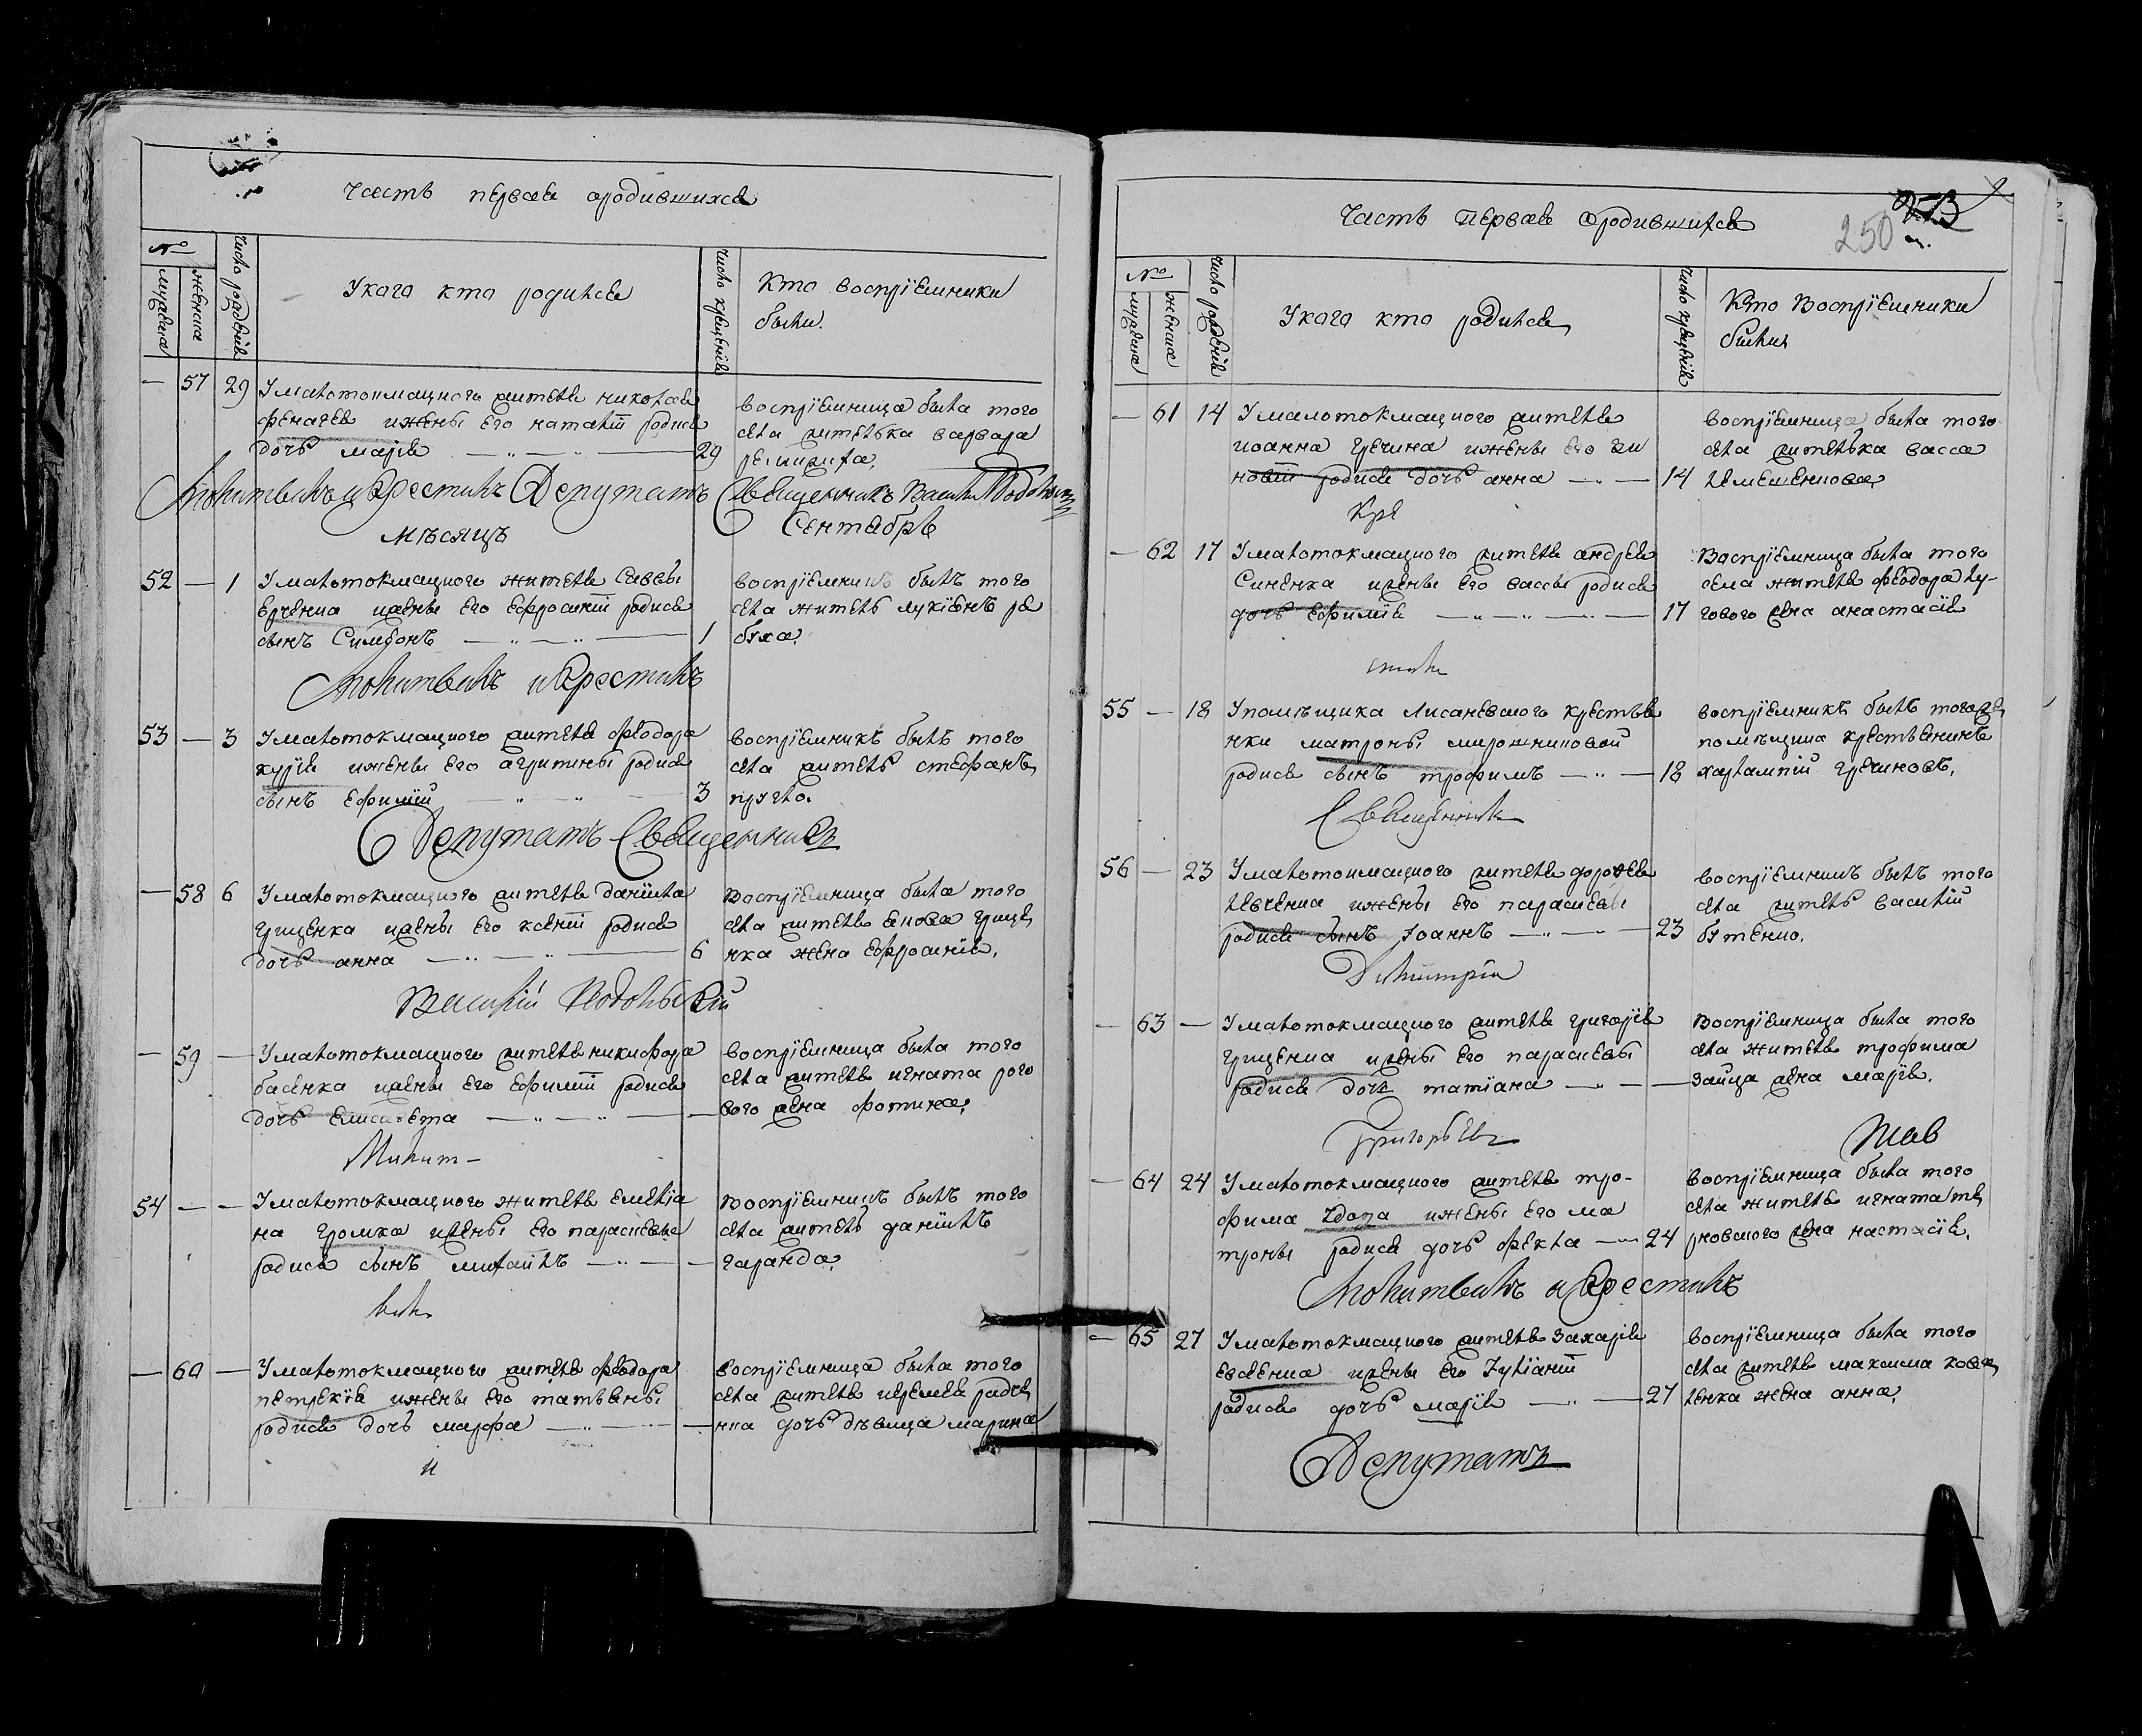 Часть первая о родившихся
№
мужеска
женска
Число рожденія
У кого кто родился
Число крещенія
Кто воспріемники
были
— 57 29 У малотокмацкого жителя николая
и жены его наталіи родися
дочь марія 29
воспріемница была того
села жителька варвара
Молитвилъ и Крестилъ Депутатъ Священникъ
мѣсяцъ Сентябрь
52 — 1 У малотокмацкого жителя Саввы
и жены его Ефросиніи родися
сынъ Симеонъ 1
воспріемникъ былъ того
села житель лукіянъ ря
буха
Молитвилъ и Крестилъ
53 — 3 У малотокмацкого жителя феодора
курія и жены его агрипины родися
сынъ Ефимій 3
воспріемникъ былъ того
села житель стефанъ
пругло.
Депутатъ Священникъ
— 58 6 У малотокмацкого жителя даніила
грищенка и жены его ксеніи родися
дочь анна 6
воспріемница была того
села жителя якова грище
нка жена Ефросинія.
Василій Подольскій
— 59 — У малотокмацкого жителя никифора
басенка и жены его Ефиміи родися
дочь Елисавета —
воспріемница была того
села жителя игната рого
вого жена фотина.
54 — — У малотокмацкого жителя Емелія
на громка и жены его параскевы
родися сынъ михаилъ —
воспріемникъ былъ того
села житель даніилъ
гаранда.
— 60 — У малотокмацкого жителя феодора
и жены его татьяны
родися дочь марфа —
воспріемница была того
села жителя
нка дочь дѣвица марина
и
Часть первая о родившихся
250
№
мужеска
женска
Число рожденія
У кого кто родился
Число крещенія
Кто воспріемники
были
— 61 14 У малотокмацкого жителя
иоанна гречина и жены его зи
новіи родися дочь анна 14
воспріемница была того
села жителька васса
Кре
— 62 17 У малотокмацкого жителя андрея
Синенка и жены его вассы родися
дочь Ефимія 17
воспріемница была того
села жителя феодора лу-
гового жена анастасія
стилъ
55 — 18 У помѣщика Лисаневского крестья
нки матроны мирошниковой
родися сынъ трофимъ 18
воспріемникъ былъ того же
помѣщика крестьянинъ
харлампій гречиновъ.
Священник
56 — 23 У малотокмацкого жителя дорофея
левченка и жены его параскевы
родися сынъ Іоаннъ 23
воспріемникъ былъ того
села житель василій
бутенко.
Димитрій
— 63 — У малотокмацкого жителя григорія
грищенка и жены его параскевы
родися дочь татіана —
воспріемница была того
села жителя трофима
зайца жена марія.
Григорьев
— 64 24 У малотокмацкого жителя тро-
фима и жены его ма
троны родися дочь фекла 24
воспріемница была того
села жителя игната те
рновского жена настасія.
Молитвилъ и Крестилъ
— 65 27 У малотокмацкого жителя захарія
евсеенка и жены его Іуліаніи
родися дочь марія 27
воспріемница была того
села жителя максима кова
ленка жена анна.
Депутатъ